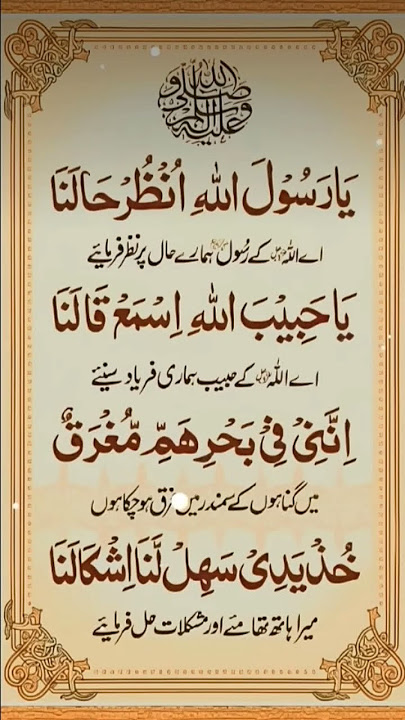 صلى الله عليه وآله وسلم
يَارَسُوْلَ اللهِ اُنْظُرْ حَالَنَا
اے اللہ عزوجل کے رسول ہمارے حال پر نظر فرمایئے
يَا حَبِيْبَ اللهِ اِسْمَعْ قَالَنَا
اے اللہ عزوجل کے حبیب ہماری فریاد سنیئے
اِنَّنِيْ فِيْ بَحْرِ هَمٍّ مُّغْرَقٌ
میں گناہوں کے سمندر میں غرق ہوچکا ہوں
خُذْيَدِيْ سَهِلْ لَّنَا اِشْكَالَنَا
میرا ہاتھ تھامئے اور مشکلات حل فرمایئے